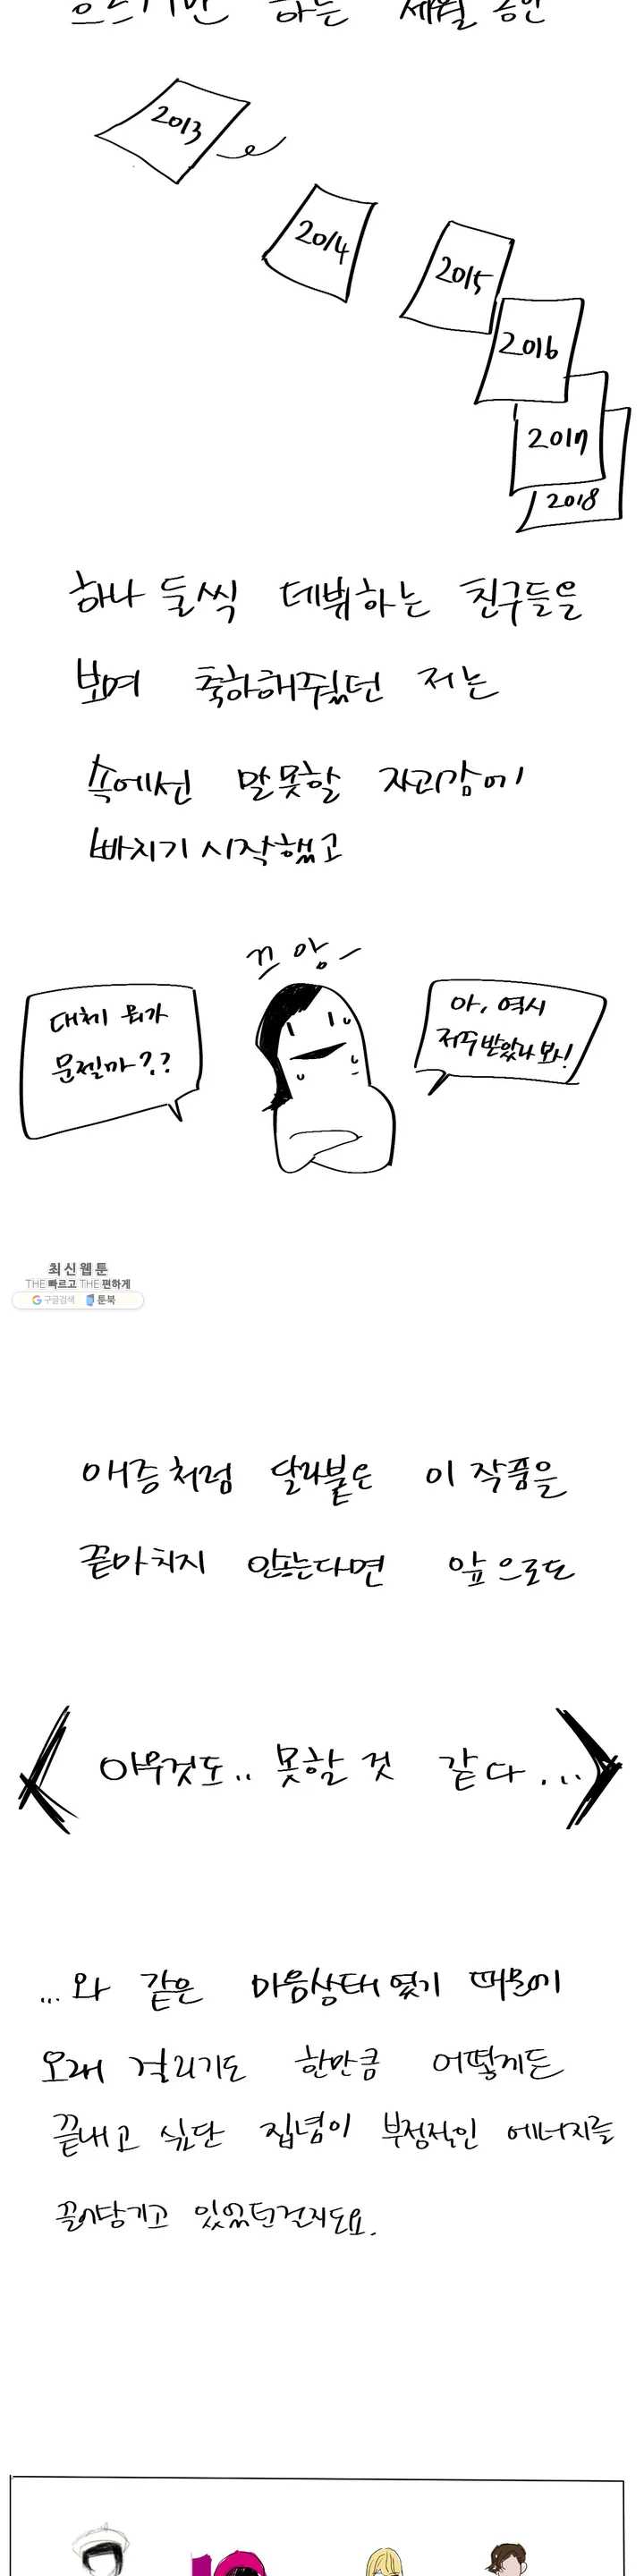 흐르기만 하는 세월 동안
2013
2014
2015
2016
2017
2018
하나 둘씩 데뷔하는 친구들을
보며 축하해줬던 저는
속에선 말못할 자괴감에
빠지기 시작했고
끄앙~
대체 뭐가
문젤까??
아, 역시
저주받았나봐!
최신웹툰
THE 빠르고 THE 편하게
구글검색 툰북
애증처럼 달라붙은 이 작품을
끝마치지 않는다면 앞으로도
아무것도.. 못할 것 같다...
...와 같은 마음상태였기 때문에
오래 걸리기도 한만큼 어떻게든
끝내고 싶단 집념이 부정적인 에너지를
끌어당기고 있었던걸지도요.